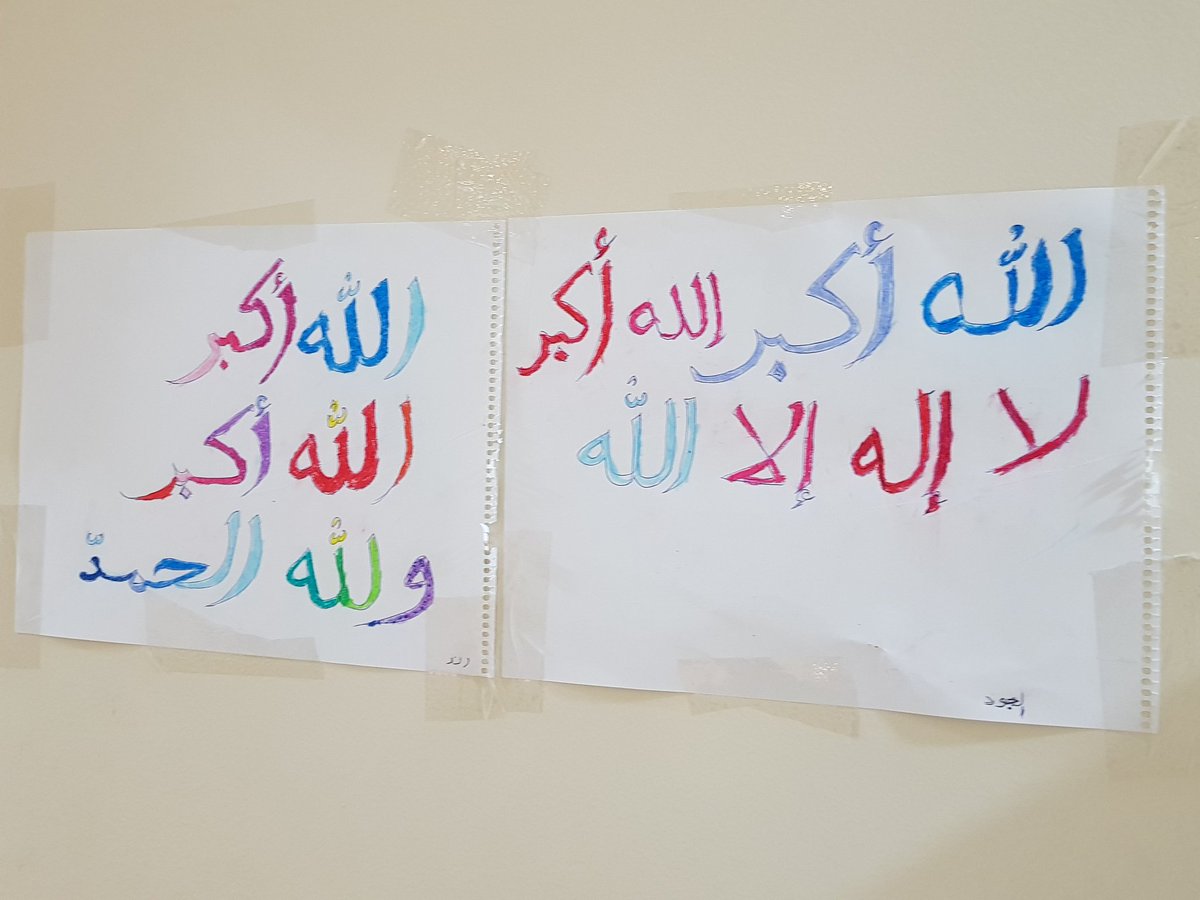 الله أكبر الله أكبر
لا إله إلا الله
الجود
الله أكبر
الله أكبر
ولله الحمد